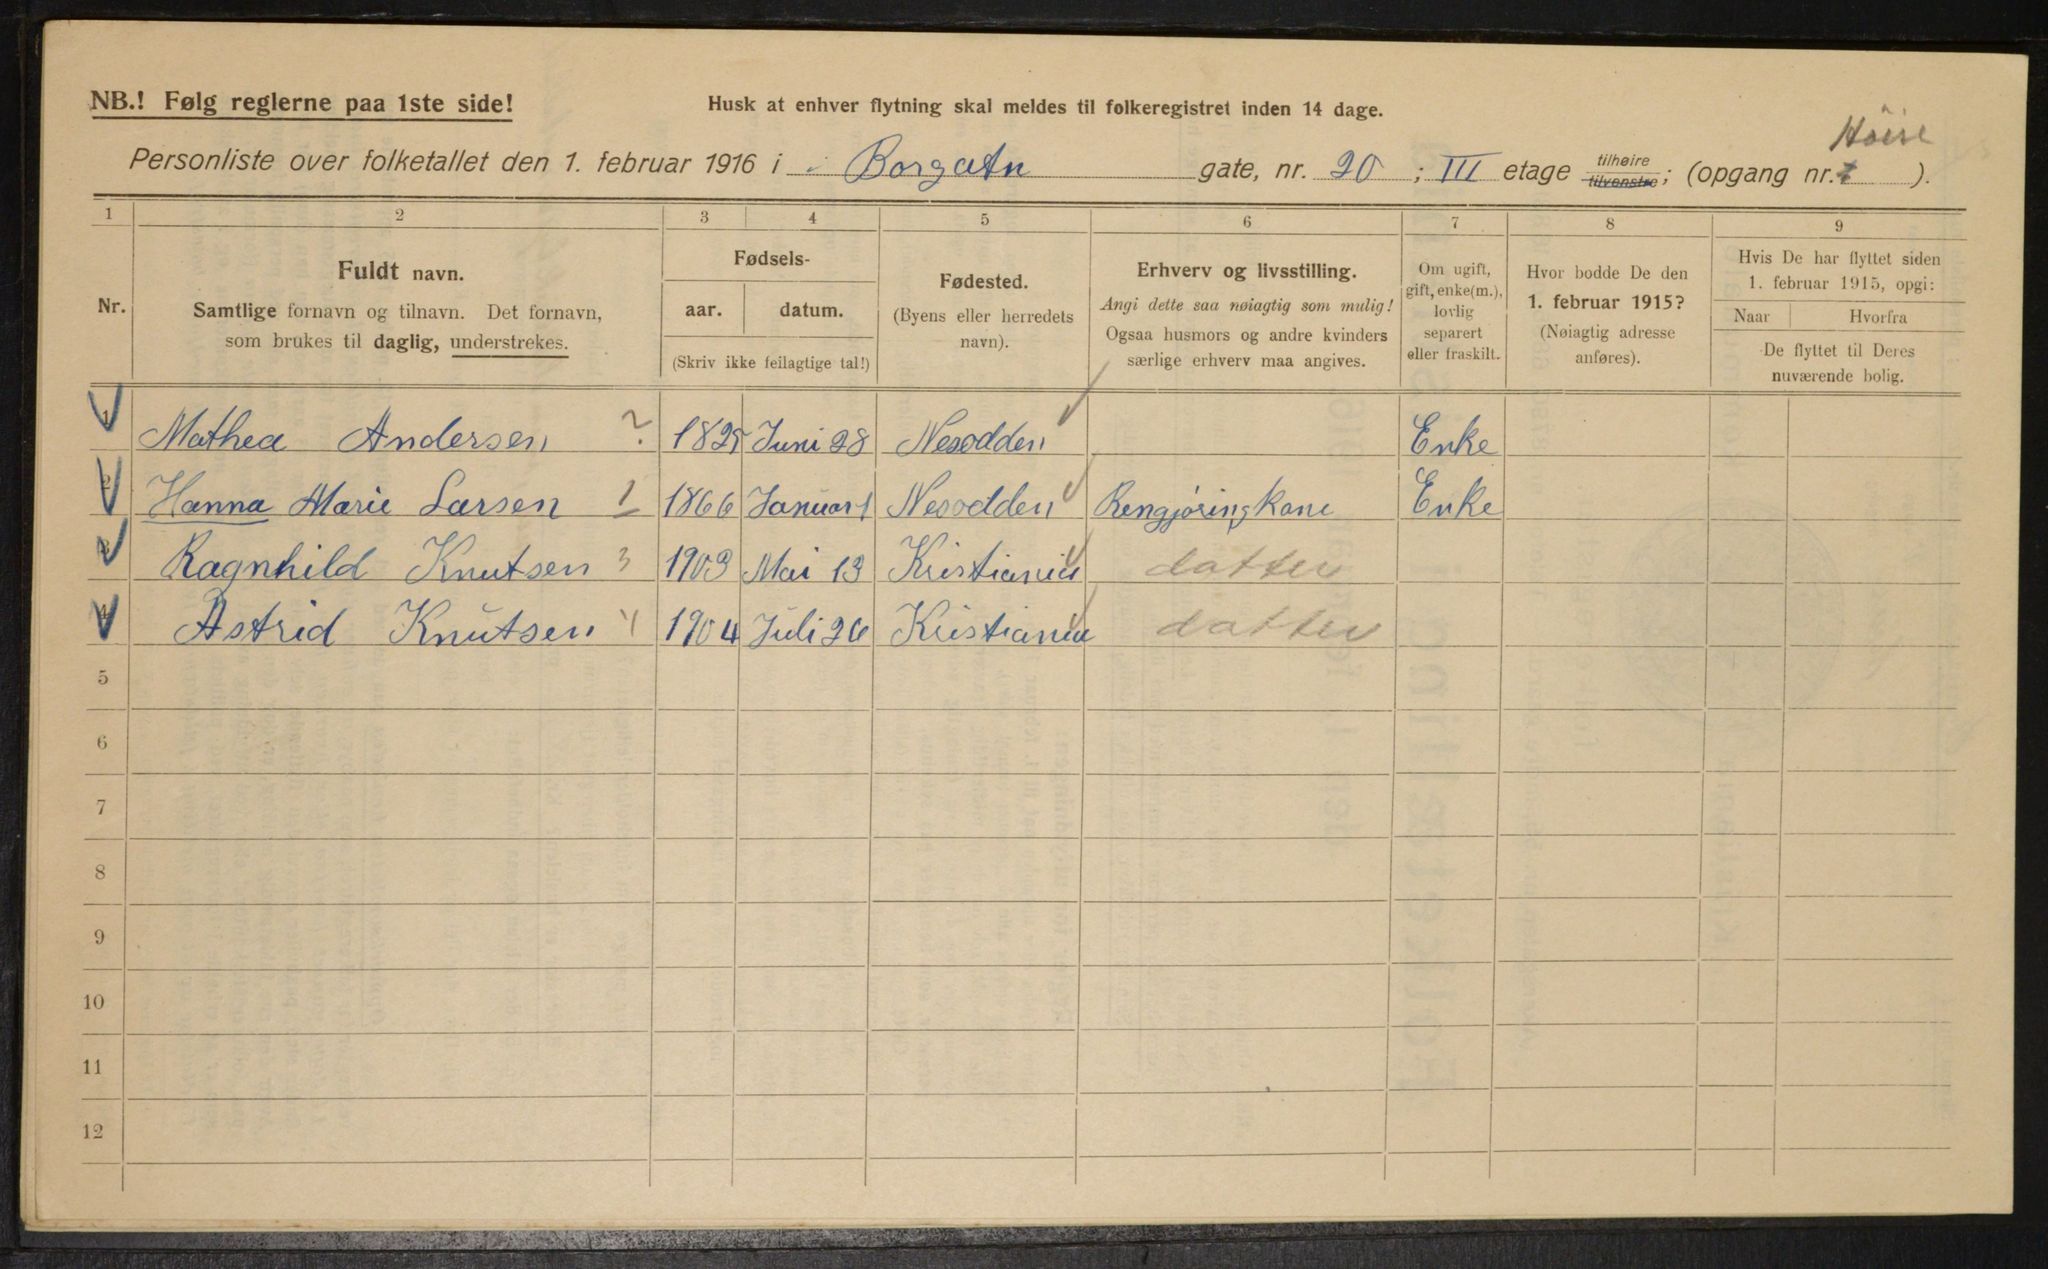 NB.! Følg reglerne paa 1ste side!
Husk at enhver flytning skal meldes til folkeregistret inden 14 dage.
Høire
Personliste over folketallet den 1. februar 1916 i Borgatn gate, nr. 20; III etage tilhøire tilvenstre; (opgang nr. ).
1 2 3 4 5 6 7 8 9
Nr.
Fuldt navn.
Samtlige fornavn og tilnavn. Det fornavn,
som brukes til daglig, understrekes.
Fødsels-
aar. datum.
(Skriv ikke feilagtige tal!)
Fødested.
(Byens eller herredets
navn).
Erhverv og livsstilling.
Angi dette saa nøiagtig som mulig!
Ogsaa husmors og andre kvinders
særlige erhverv maa angives.
Om ugift,
gift, enke(m.),
lovlig
separert
eller fraskilt.
Hvor bodde De den
1. februar 1915?
(Nøiagtig adresse
anføres).
Hvis De har flyttet siden
1. februar 1915, opgi:
Naar Hvorfra
De flyttet til Deres
nuværende bolig.
1 Mathea Andersen Juni 28 Nesodden Enke
2 Hanna Marie Larsen 1 1866 Januar 1 Nesodden Rengjøringkone Enke
3 Ragnhild Knutsen 3 1903 Mai 13 Kristiania datter
4 Astrid Knutsen 4 1904 Juli 26 Kristiania datter
5
6
7
8
9
10
11
12